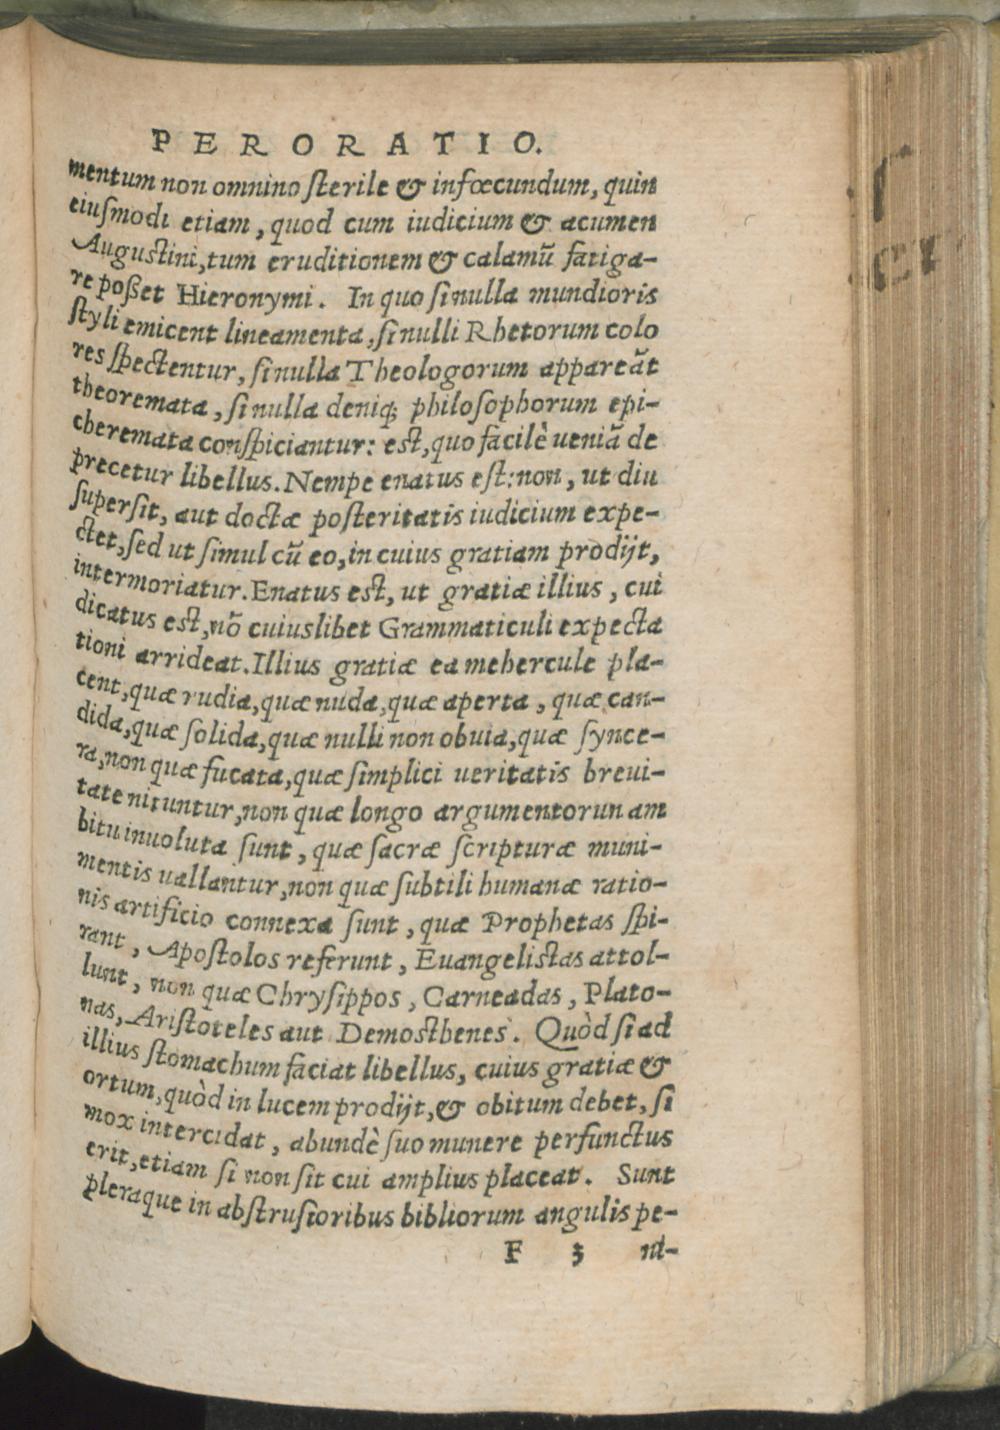 PERORATIO.
mentum non omnino sterile & infœcundum, quin
eiusmodi etiam, quod cum iudicium & acumen
Augustini, tum eruditionem & calamũ fatiga-
re posset Hieronymi. In quo si nulla mundioris
styli emicent lineamenta, si nulli Rhetorum colo
res spectentur, si nulla Theologorum appareãt
theoremata, si nulla deniq; philosophorum epi-
cheremata conspiciantur: est, quo facilè ueniã de
precetur libellus. Nempe enatus est: non, ut diu
supersit, aut doctæ posteritatis iudicium expe-
ctet, sed ut simul cũ eo, in cuius gratiam prodijt,
intermoriatur. Enatus est, ut gratiæ illius, cui
dicatus est, nõ cuiuslibet Grammaticuli expecta
tioni arrideat. Illius gratiæ ea mehercule pla-
cent, quæ rudia, quæ nuda, quæ aperta, quæ can-
dida, quæ solida, quæ nulli non obuia, quæ synce-
ra, non quæ fucata, quæ simplici ueritatis breui-
tate nituntur, non quæ longo argumentorun am
bitu inuoluta sunt, quæ sacræ scripturæ muni-
mentis uallantur, non quæ subtili humanæ ratio-
nis artificio connexa sunt, quæ Prophetas spi-
rant, Apostolos referunt, Euangelistas attol-
lunt, non quæ Chrysippos, Carneadas, Plato-
nas, Aristoteles aut Demosthenes. Quòd si ad
illius stomachum faciat libellus, cuius gratiæ &
ortum, quòd in lucem prodijt, & obitum debet, si
mox intercidat, abundè suo munere perfunctus
erit, etiam si non sit cui amplius placeat. Sunt
pleraque in abstrusioribus bibliorum angulis pe-
F 3 ni-